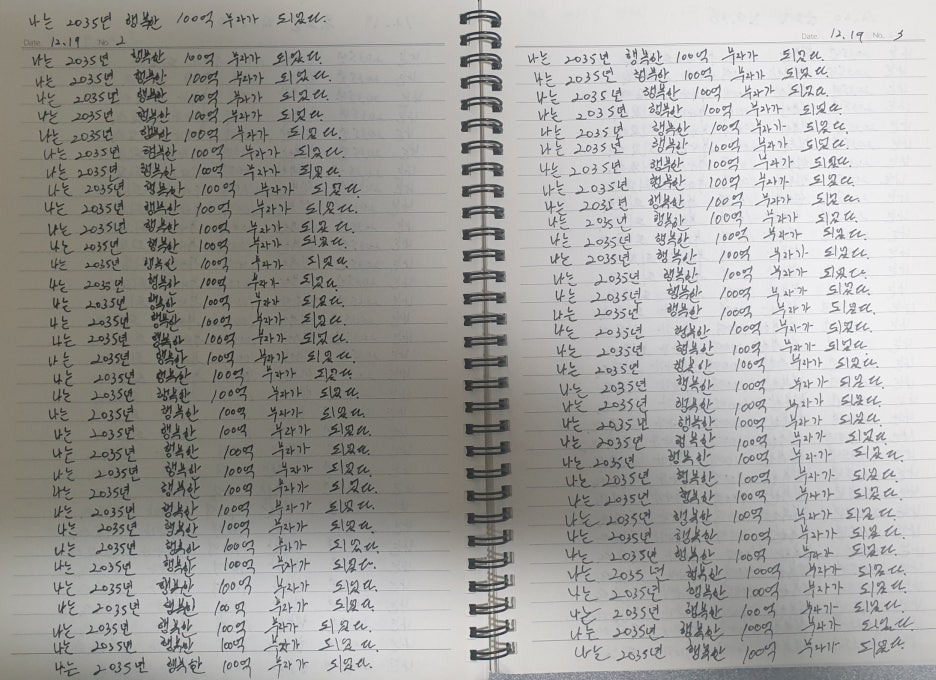 나는 2035년 행복한 100억 부자가 되었다.
Date 12.19 No. 2
나는 2035년 행복한 100억 부자가 되었다.
나는 2035년 행복한 100억 부자가 되었다.
나는 2035년 행복한 100억 부자가 되었다.
나는 2035년 행복한 100억 부자가 되었다.
나는 2035년 행복한 100억 부자가 되었다.
나는 2035년 행복한 100억 부자가 되었다.
나는 2035년 행복한 100억 부자가 되었다.
나는 2035년 행복한 100억 부자가 되었다.
나는 2035년 행복한 100억 부자가 되었다.
나는 2035년 행복한 100억 부자가 되었다.
나는 2035년 행복한 100억 부자가 되었다.
나는 2035년 행복한 100억 부자가 되었다.
나는 2035년 행복한 100억 부자가 되었다.
나는 2035년 행복한 100억 부자가 되었다.
나는 2035년 행복한 100억 부자가 되었다.
나는 2035년 행복한 100억 부자가 되었다.
나는 2035년 행복한 100억 부자가 되었다.
나는 2035년 행복한 100억 부자가 되었다.
나는 2035년 행복한 100억 부자가 되었다.
나는 2035년 행복한 100억 부자가 되었다.
나는 2035년 행복한 100억 부자가 되었다.
나는 2035년 행복한 100억 부자가 되었다.
나는 2035년 행복한 100억 부자가 되었다.
나는 2035년 행복한 100억 부자가 되었다.
나는 2035년 행복한 100억 부자가 되었다.
나는 2035년 행복한 100억 부자가 되었다.
나는 2035년 행복한 100억 부자가 되었다.
나는 2035년 행복한 100억 부자가 되었다.
나는 2035년 행복한 100억 부자가 되었다.
나는 2035년 행복한 100억 부자가 되었다.
나는 2035년 행복한 100억 부자가 되었다.
나는 2035년 행복한 100억 부자가 되었다.
나는 2035년 행복한 100억 부자가 되었다.
Date 12.19 No. 3
나는 2035년 행복한 100억 부자가 되었다.
나는 2035년 행복한 100억 부자가 되었다.
나는 2035년 행복한 100억 부자가 되었다.
나는 2035년 행복한 100억 부자가 되었다.
나는 2035년 행복한 100억 부자가 되었다.
나는 2035년 행복한 100억 부자가 되었다.
나는 2035년 행복한 100억 부자가 되었다.
나는 2035년 행복한 100억 부자가 되었다.
나는 2035년 행복한 100억 부자가 되었다.
나는 2035년 행복한 100억 부자가 되었다.
나는 2035년 행복한 100억 부자가 되었다.
나는 2035년 행복한 100억 부자가 되었다.
나는 2035년 행복한 100억 부자가 되었다.
나는 2035년 행복한 100억 부자가 되었다.
나는 2035년 행복한 100억 부자가 되었다.
나는 2035년 행복한 100억 부자가 되었다.
나는 2035년 행복한 100억 부자가 되었다.
나는 2035년 행복한 100억 부자가 되었다.
나는 2035년 행복한 100억 부자가 되었다.
나는 2035년 행복한 100억 부자가 되었다.
나는 2035년 행복한 100억 부자가 되었다.
나는 2035년 행복한 100억 부자가 되었다.
나는 2035년 행복한 100억 부자가 되었다.
나는 2035년 행복한 100억 부자가 되었다.
나는 2035년 행복한 100억 부자가 되었다.
나는 2035년 행복한 100억 부자가 되었다.
나는 2035년 행복한 100억 부자가 되었다.
나는 2035년 행복한 100억 부자가 되었다.
나는 2035년 행복한 100억 부자가 되었다.
나는 2035년 행복한 100억 부자가 되었다.
나는 2035년 행복한 100억 부자가 되었다.
나는 2035년 행복한 100억 부자가 되었다.
나는 2035년 행복한 100억 부자가 되었다.